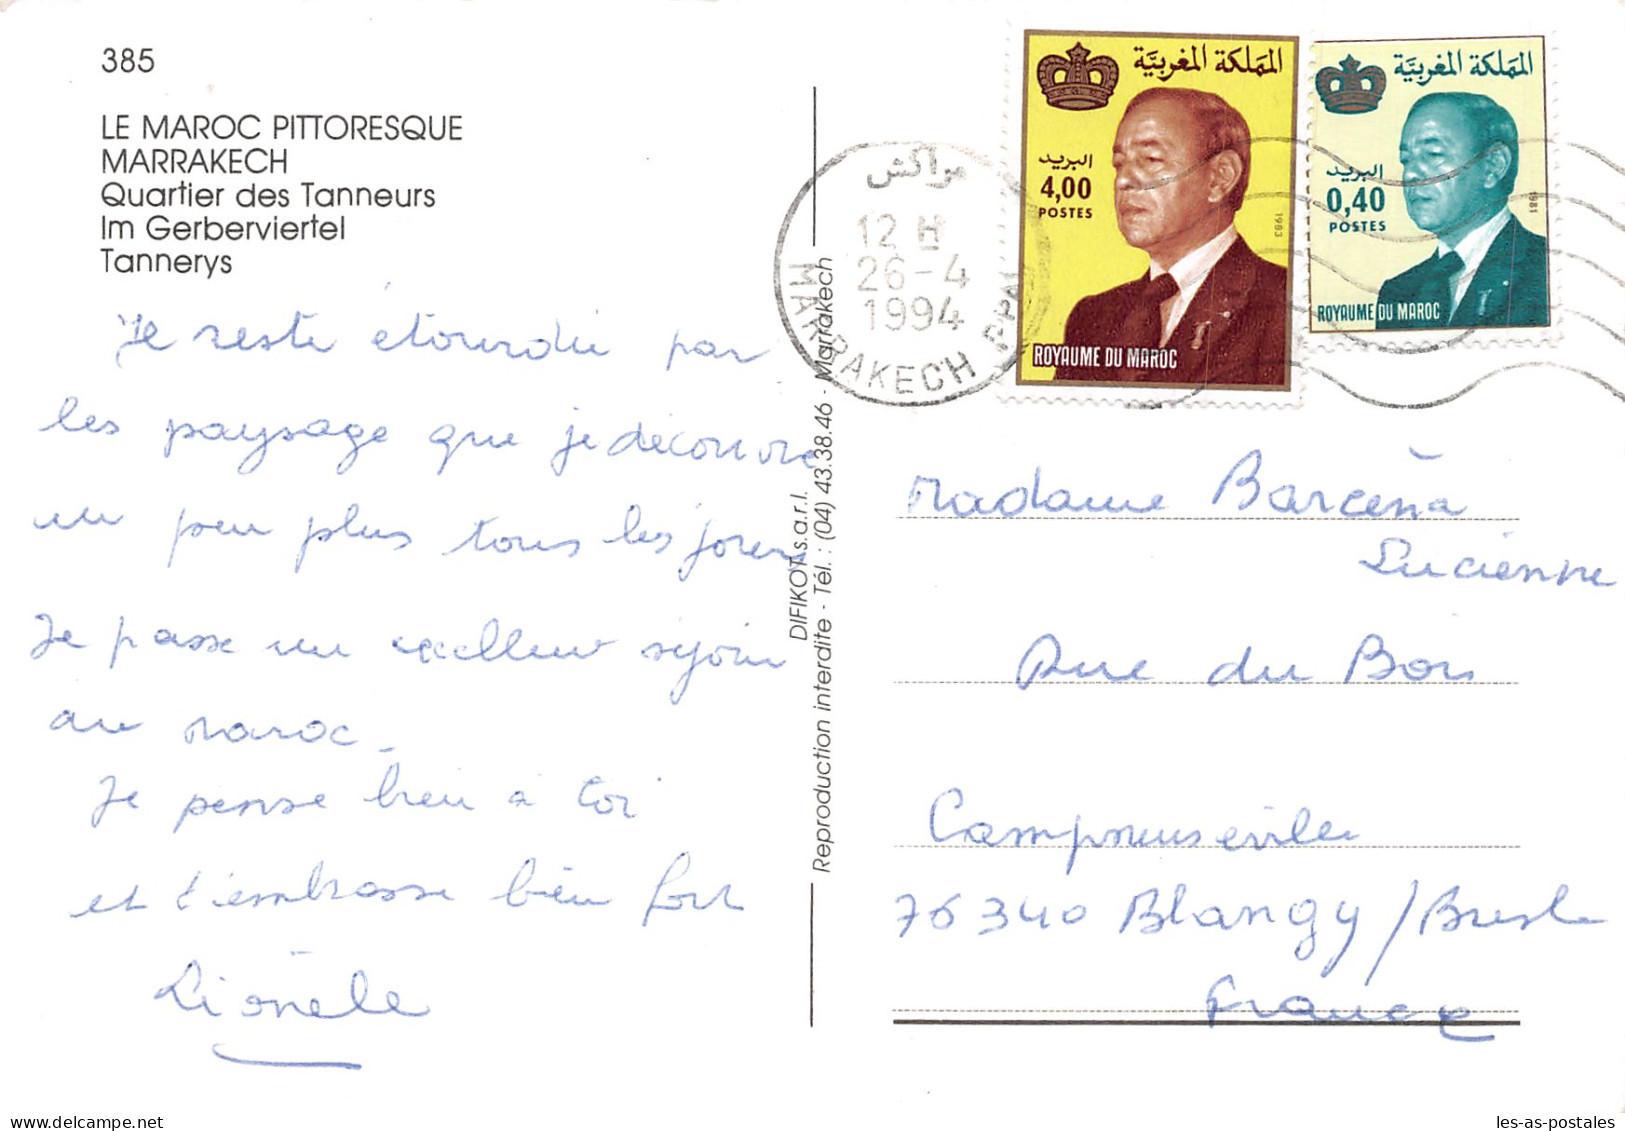 385
LE MAROC PITTORESQUE
MARRAKECH
Quartier des Tanneurs
Im Gerberviertel
Tannerys
Je reste étourdie par
les paysage que je découvre
un peu plus tous les jours
Je passe un excellent séjour
au Maroc.
Je pense bien à toi
et t'embrasse bien fort
Lionèle
DIFIKOT s.a.r.l.
Reproduction interdite - Tél. : (04) 43.38.46 - Marrakech
مراكش
12 H
26-4
1994
MARRAKECH PPAL
المملكة المغربية
البريد
4,00
POSTES
1983
ROYAUME DU MAROC
المملكة المغربية
البريد
0,40
POSTES
1981
ROYAUME DU MAROC
Madame Barcéna
Lucienne
Rue du Bois
Campneuseville
76340 Blangy/Bresle
France
les-as-postales